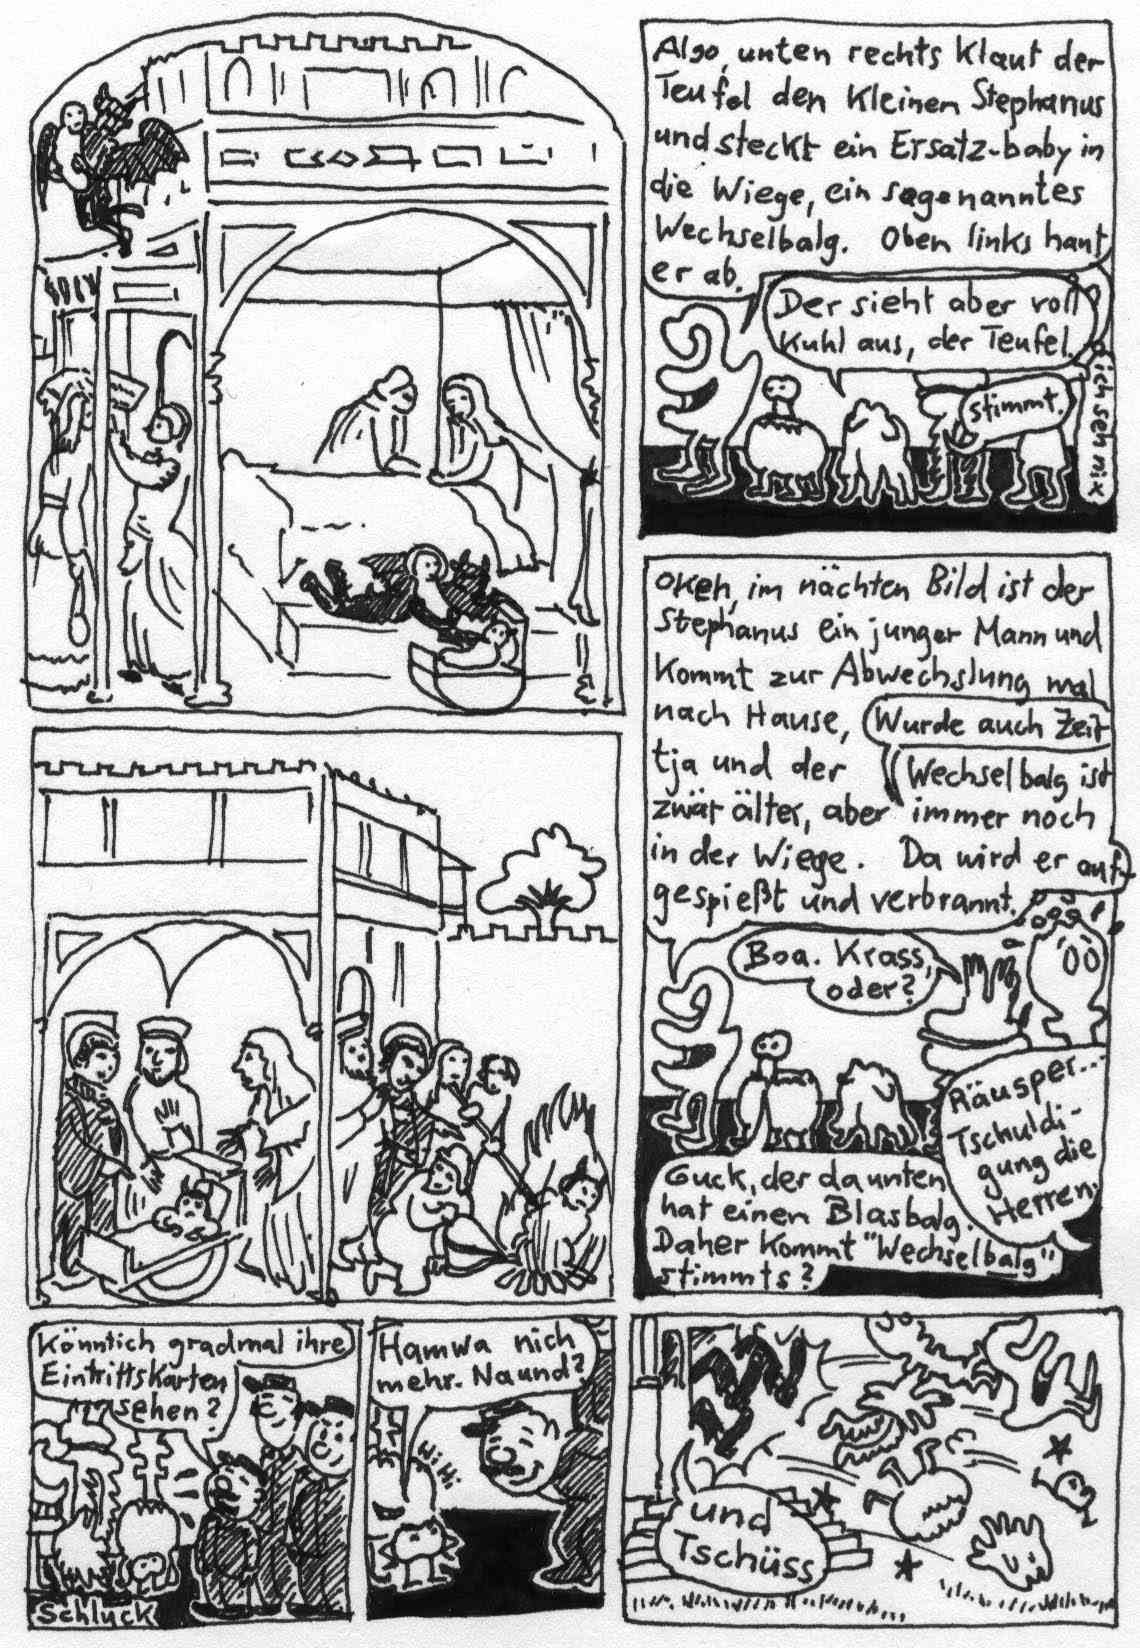 Algo, unten rechts klaut der
Teufel den kleinen Stephanus
und steckt ein Ersatz-baby in
die Wiege, ein sogenanntes
Wechselbalg. Oben links haut
er ab.
Der sieht aber voll
kuhl aus, der Teufel.
stimmt.
ich seh nix
okeh, im nächten Bild ist der
Stephanus ein junger Mann und
kommt zur Abwechslung mal
nach Hause,
Wurde auch Zeit
tja und der Wechselbalg ist
zwar älter, aber immer noch
in der Wiege. Da wird er auf-
gespießt und verbrannt.
Boa. Krass,
oder?
Räusper...
Tschuldi-
gung die
Herren.
Guck, der da unten
hat einen Blasbalg.
Daher kommt "Wechselbalg"
stimmts?
Könntich gradmal ihre
Eintrittskarten
sehen?
Schluck
Hamwa nich
mehr. Na und?
Hi Hi
und
Tschüss